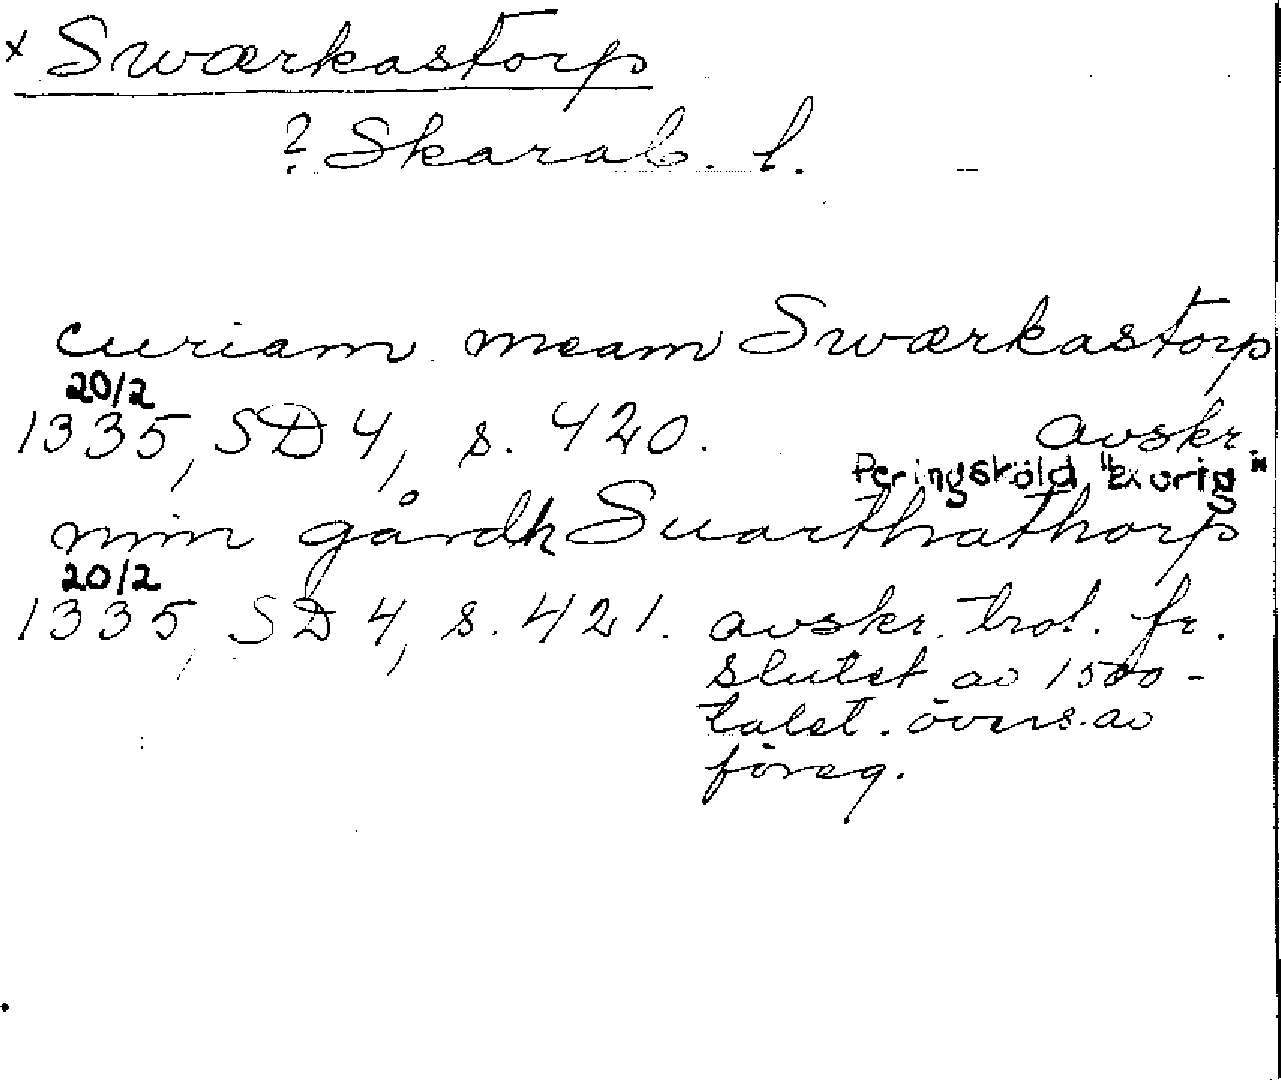 x Swærkastorp
? Skarab. l.
curiam meam Swærkastorp
20/2
1335, SD 4, s. 420. avskr.
Peringsköld "Ex orig"
min gårdh Suarthathorp
20/2
1335, SD 4, s. 421. avskr. trol. fr.
slutet av 1500-
talet. övers. av
föreg.